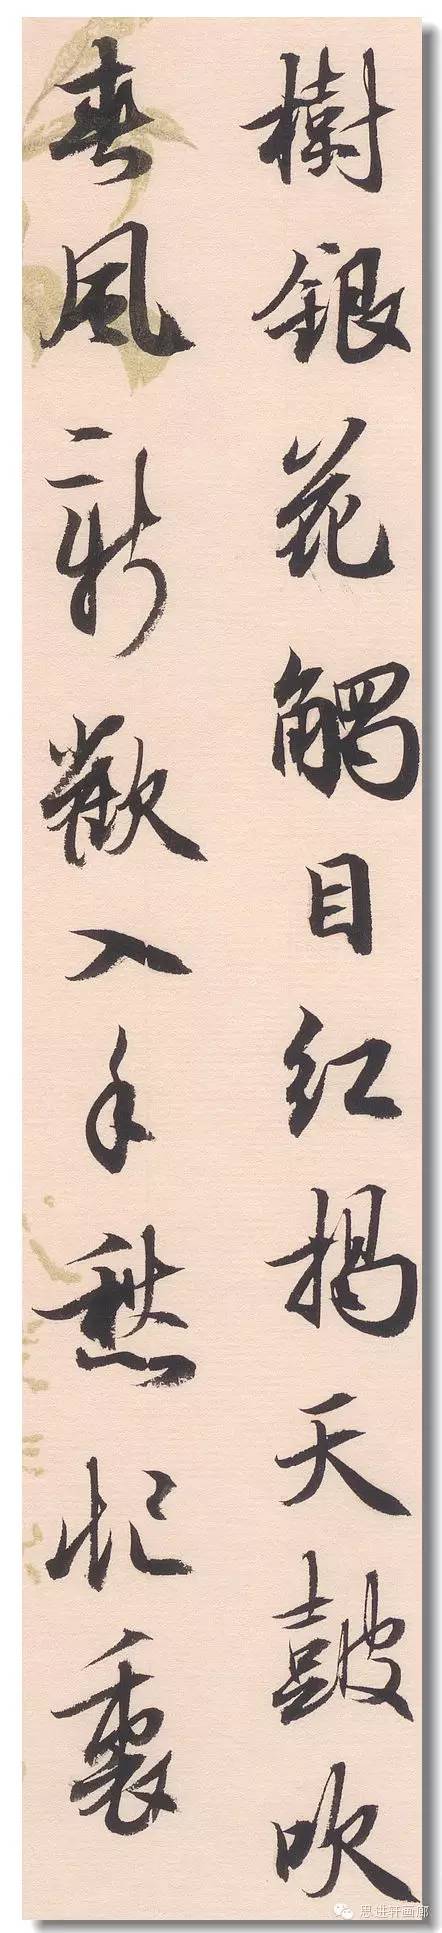 樹銀花觸目紅揭天鼓吹
春風新歡入手愁忙裏
思进轩画廊